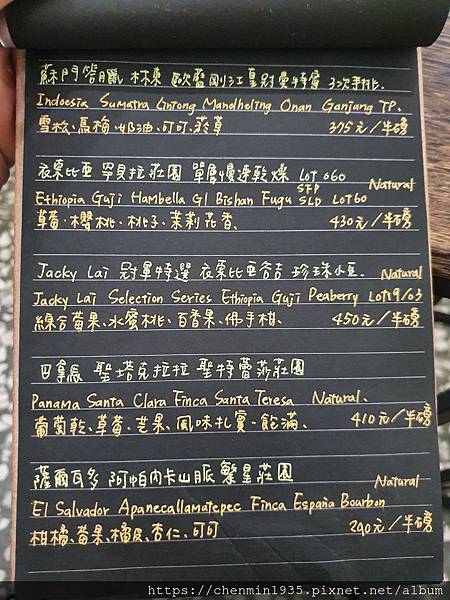 蘇門答臘 林東 歐藍剛江皇冠曼特寧 3次手挑.
Indoesia Sumatra Lintong Mandheling Onan Ganjang TP.
雪松、烏梅、奶油、可可、菸草 375元/半磅
衣索比亞 罕貝拉莊園 單層慢速乾燥 Lot 060 Natural
Ethiopia Guji Hambella G1 Bishan Fugu STP SLD LOT60
草莓、櫻桃、桃子、茉莉花香、 430元/半磅
Jacky Lai 冠軍特選 衣索比亞谷吉 珍珠小豆. Natural
Jacky Lai Selection Series Ethiopia Guji Peaberry LOT19/03
綜合莓果、水蜜桃、百香果、佛手柑、 450元/半磅
巴拿馬 聖塔克拉拉 聖特蕾莎莊園
Panama Santa Clara Finca Santa Teresa Natural、
葡萄乾、草莓、芒果、風味扎實、飽滿、 410元/半磅
薩爾瓦多 阿帕內卡山脈 繁星莊園 Natural
El Salvador Apanecallamatepec Finca España Bourbon
柑橘、莓果、橘皮、杏仁、可可 290元/半磅
https://chenmin1935.pixnet.net/album